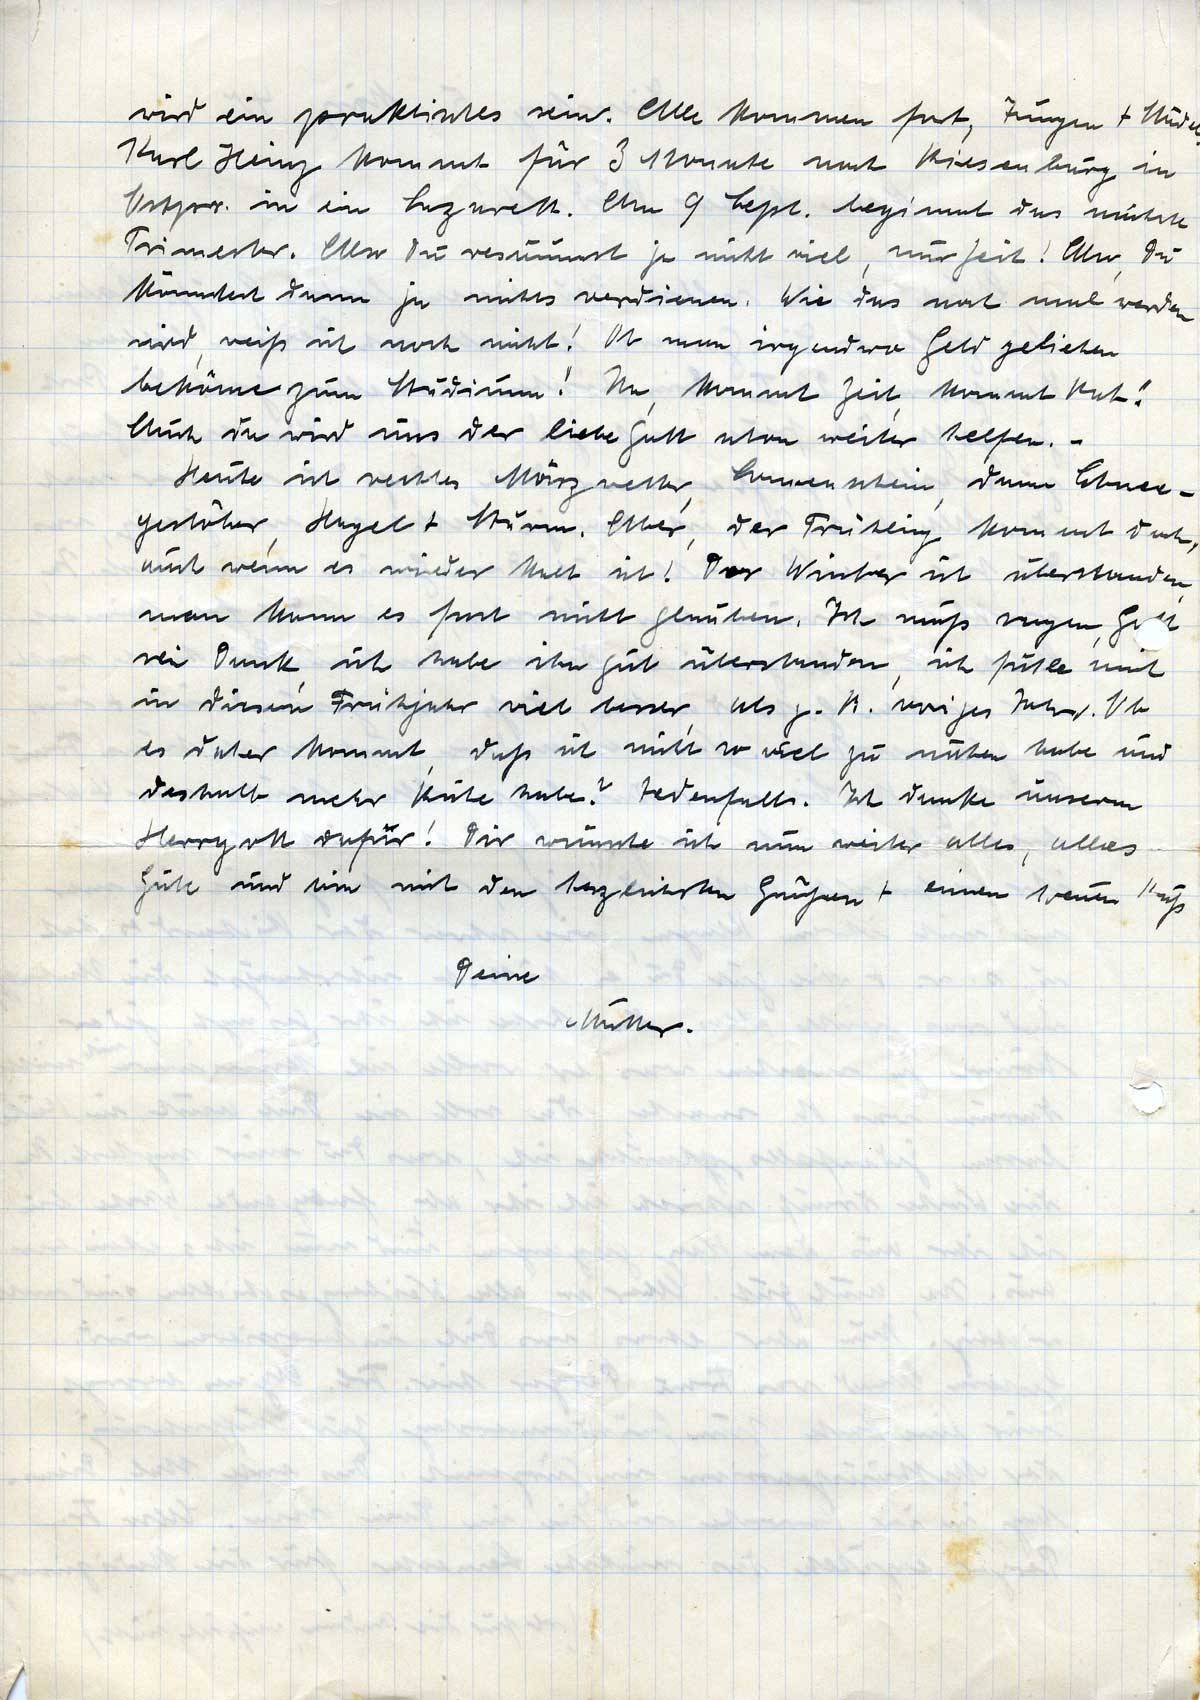 wird ein praktisches sein. Alle kommen fort, Jungen + Mädel.
Karl Heinz kommt für 3 Monate nach Riesenburg in
Ostpr. in ein Lazarett. Am 9 Sept. beginnt das nächste
Trimester. Also Du versäumst ja nicht viel, nur Zeit! Aber, Du
könntest dann ja nichts verdienen. Wie das noch mal werden
wird, weiß ich noch nicht! Ob man irgendwo Geld geliehen
bekäme zum Studium! Na, kommt Zeit, kommt Rat!
Auch da wird uns der liebe Gott schon weiter helfen. -
Heute ist rechtes Märzwetter, Sonnenschein, dann Schnee-
gestöber, Hagel + Sturm. Aber, der Frühling kommt doch,
auch wenn es wieder kalt ist! Der Winter ist überstanden,
man kann es fast nicht glauben. Ich muß sagen, Gott
sei Dank, ich habe ihn gut überstanden, ich fühle mich
in diesem Frühjahr viel besser, als z. B. voriges Jahr. Ob
es daher kommt, daß ich nicht so viel zu nähen habe und
deshalb mehr Ruhe habe? Jedenfalls. Ich danke unserm
Herrgott dafür! Dir wünsche ich nun weiter alles, alles
Gute und bin mit den herzlichsten Grüßen + einen treuen Kuß
Deine
Mutter.